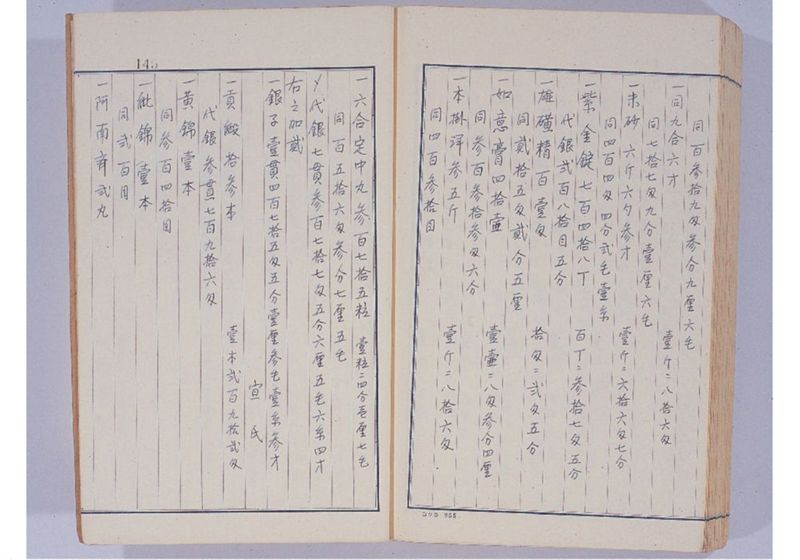 同百参拾九匁参分九厘六毛
一同九合六才 壹斤ニ八拾六匁
同七拾七匁九分壹厘六毛
一朱砂 六斤六匁参才 壹斤ニ六拾六匁七分
同四百四匁四分弐毛壹糸
一紫金錠七百四拾八丁 百丁ニ参拾七匁五分
代銀弐百八拾目五分
一雄磺精百壹匁 拾匁ニ弐匁五分
同貳拾五匁貳分五厘
一如意膏四拾壷 壹壷ニ八匁参分四厘
同参百参拾参匁六分
一本 参五斤 壹斤ニ八拾六匁
同四百参拾目
145
一六合定中丸参百七拾五粒 壹粒ニ四分壱厘七毛
同百五拾六匁参分七厘五毛
〆代銀七貫参百七拾七匁五分六厘五毛六糸四才
右之加貳
一銀子壹貫四百七拾五匁五分壹厘参毛壹糸参才
宣氏
一貢緞拾参本 壹本弐百九拾弐匁
代銀参貫七百九拾六匁
一黄錦壹本
同参百四拾目
一紕錦壹本
同弐百目
一阿南斉弐丸
コクヨ 955